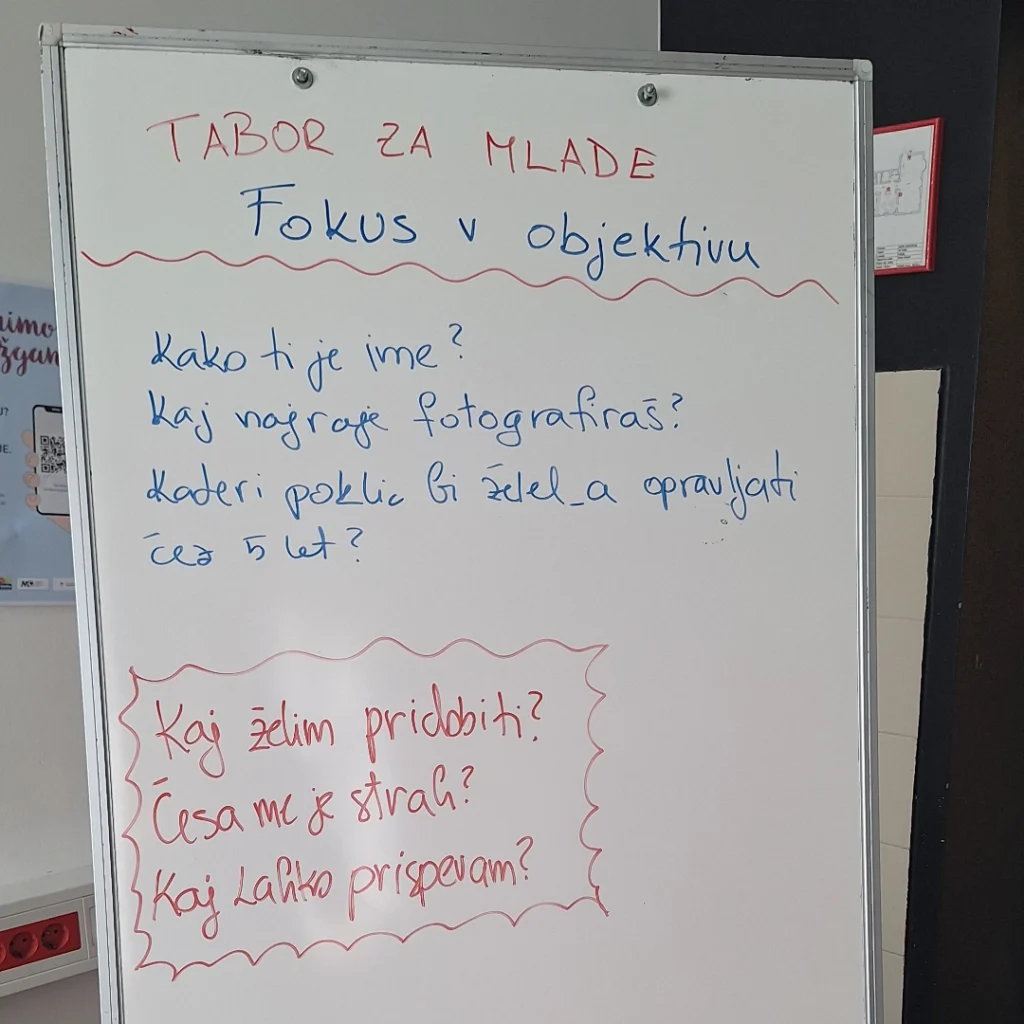 TABOR ZA MLADE
Fokus v objektivu
Kako ti je ime?
Kaj najraje fotografiraš?
Kateri poklic bi želel_a opravljati
čez 5 let?
Kaj želim pridobiti?
Česa me je strah?
Kaj lahko prispevam?